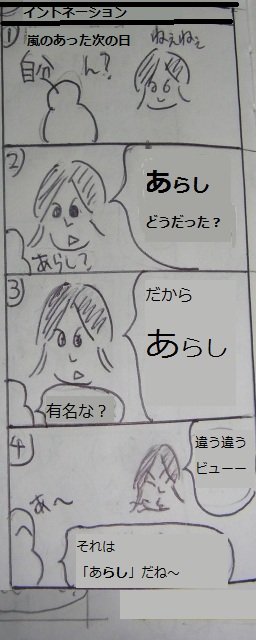 イントネーション
①
嵐のあった次の日
ねぇねぇ
自分
ん?
2)
あらし
どうだった？
あらし?
3)
だから
あらし
有名な？
4
違う違う
ビューー
あ〜
それは
「あらし」だね～